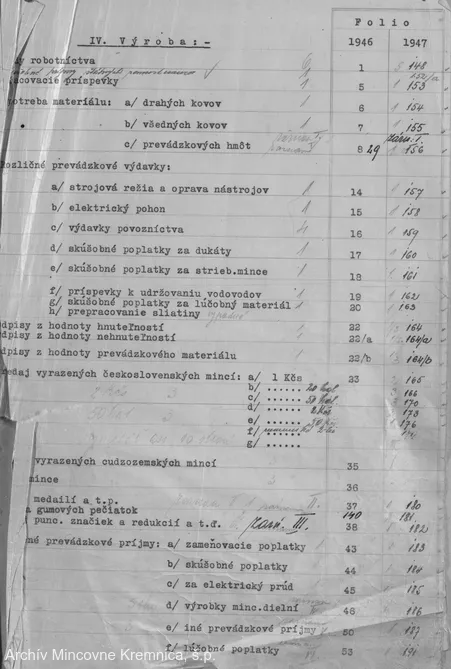 Folio
IV. Výroba:-
1946 1947
y robotníctva 1 148
152/a
acovacie príspevky 1 5 153
otreba materiálu: a/ drahých kovov 1 6 154
b/ všedných kovov 1 7 155
c/ prevádzkových hmôt 8 29 156
ozličné prevádzkové výdavky:
a/ strojová režia a oprava nástrojov 14 157
b/ elektrický pohon 1 15 158
c/ výdavky povozníctva 16 159
d/ skúšobné poplatky za dukáty 1 17 160
e/ skúšobné poplatky za strieb.mince 1 18 161
f/ príspevky k udržovaniu vodovodov 1 19 162
g/ skúšobné poplatky za lúčobný materiál 1 20 163
h/ prepracovanie sliatiny
dpisy z hodnoty hnuteľností 22 164
dpisy z hodnoty nehnuteľností 22/a 164/a
dpisy z hodnoty prevádzkového materiálu 22/b 164/b
edaj vyrazených československých mincí: a/ 1 Kčs 23 165
b/ ...... 20 hal 166
c/ ...... 50 hal 170
d/ ...... 2 Kčs 173
e/ ...... 176
f/ ......
g/ ......
vyrazených cudzozemských mincí 35
mince 36
medailí a t.p. II. 37 180
a gumových pečiatok 140 181
punc. značiek a redukcií a t.ď. párn. III. 38 182
né prevádzkové príjmy: a/ zameňovacie poplatky 43 183
b/ skúšobné poplatky 44 184
c/ za elektrický prúd 45 185
d/ výrobky minc.dielní 48 186
e/ iné prevádzkové príjmy 50 187
f/ lúčobné poplatky 53 191
Archív Mincovne Kremnica, š.p.